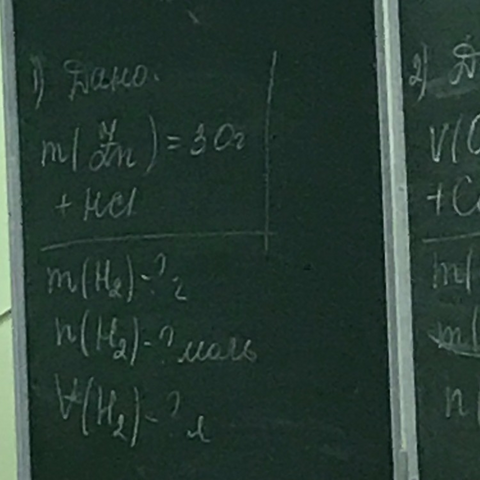 1) Дано:
m(Zn) = 30г
+ HCl
m(H₂)-? г
n(H₂)-? моль
V(H₂)-? л
2) Д
V(
+C
m(
m(
n(